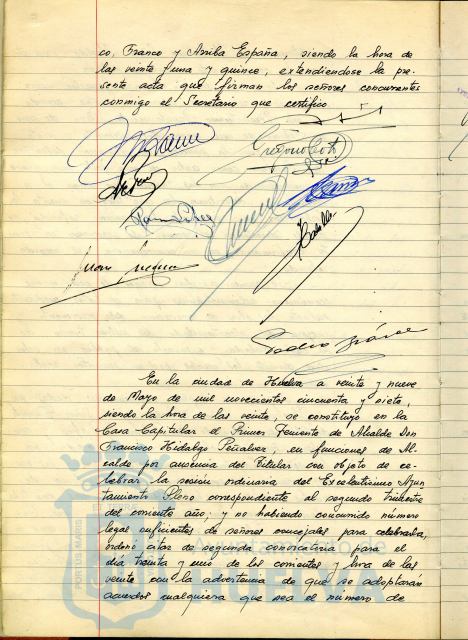 co, Franco y Arriba España, siendo la hora de
las veinte y una y quince, extendiendose la pre-
sente acta que firman los señores concurrentes
conmigo el Secretario que certifico
En la ciudad de Huelva a veinte y nueve
de Mayo de mil novecientos cincuenta y siete,
siendo la hora de las veinte, se constituyó en la
Casa Capitular el Primer Teniente de Alcalde Don
Francisco Hidalgo Peñalver, en funciones de Al-
calde por ausencia del Titular con objeto de ce-
lebrar la sesión ordinaria del Excelentisimo Ayun-
tamiento Pleno correspondiente al segundo trimestre
del corriente año; y no habiendo concurrido número
legal suficientes de señores concejales para celebrarla,
ordenó citar de segunda convocatoria para el
día treinta y uno de los corrientes y hora de las
veinte con la advertencia de que se adoptarán
acuerdos cualquiera que sea el número de
PORTUS MARIS